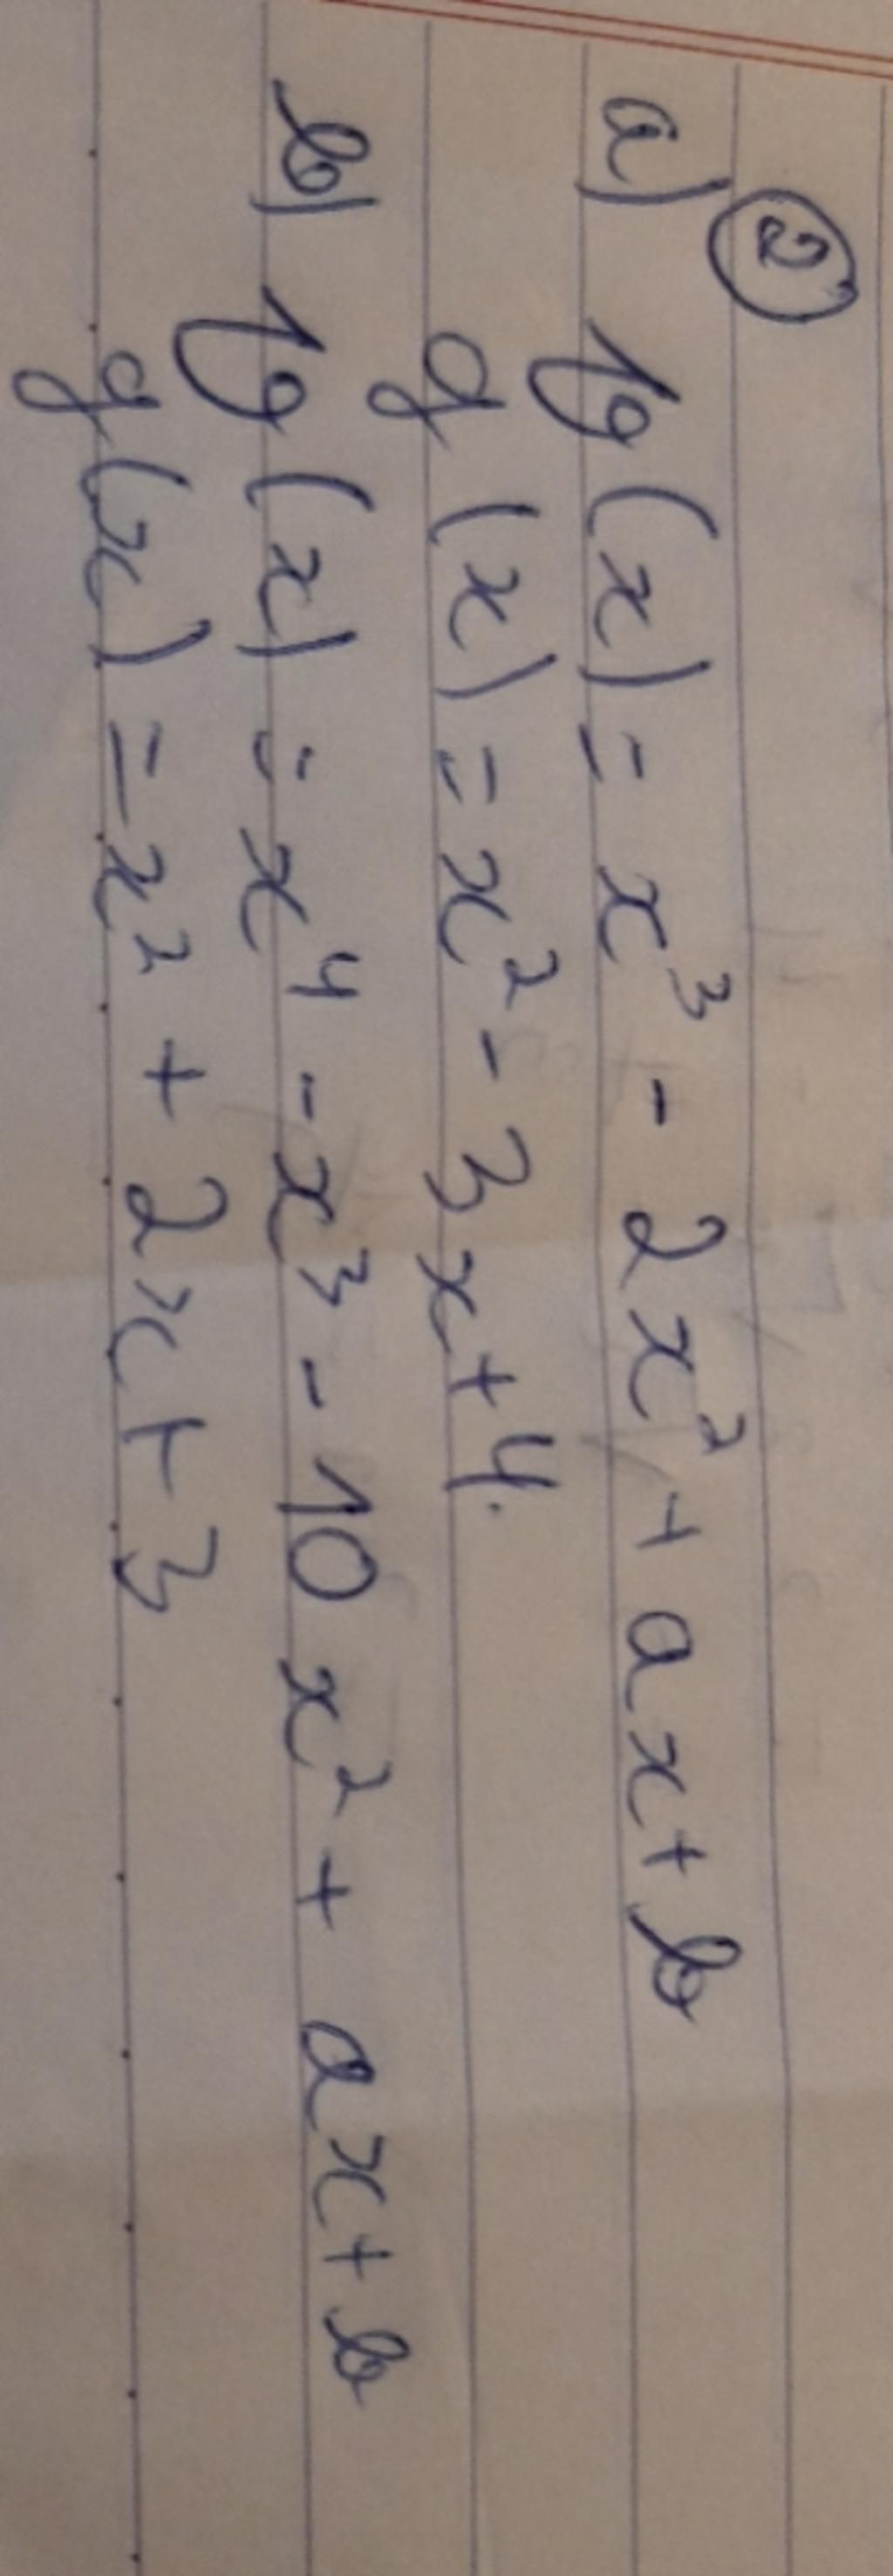 ②
a) f(x) = x³ - 2x² + ax + b
g(x) = x² - 3x + 4.
b) f(x) = x⁴ - x³ - 10x² + ax + b
g(x) = x² + 2x + 3